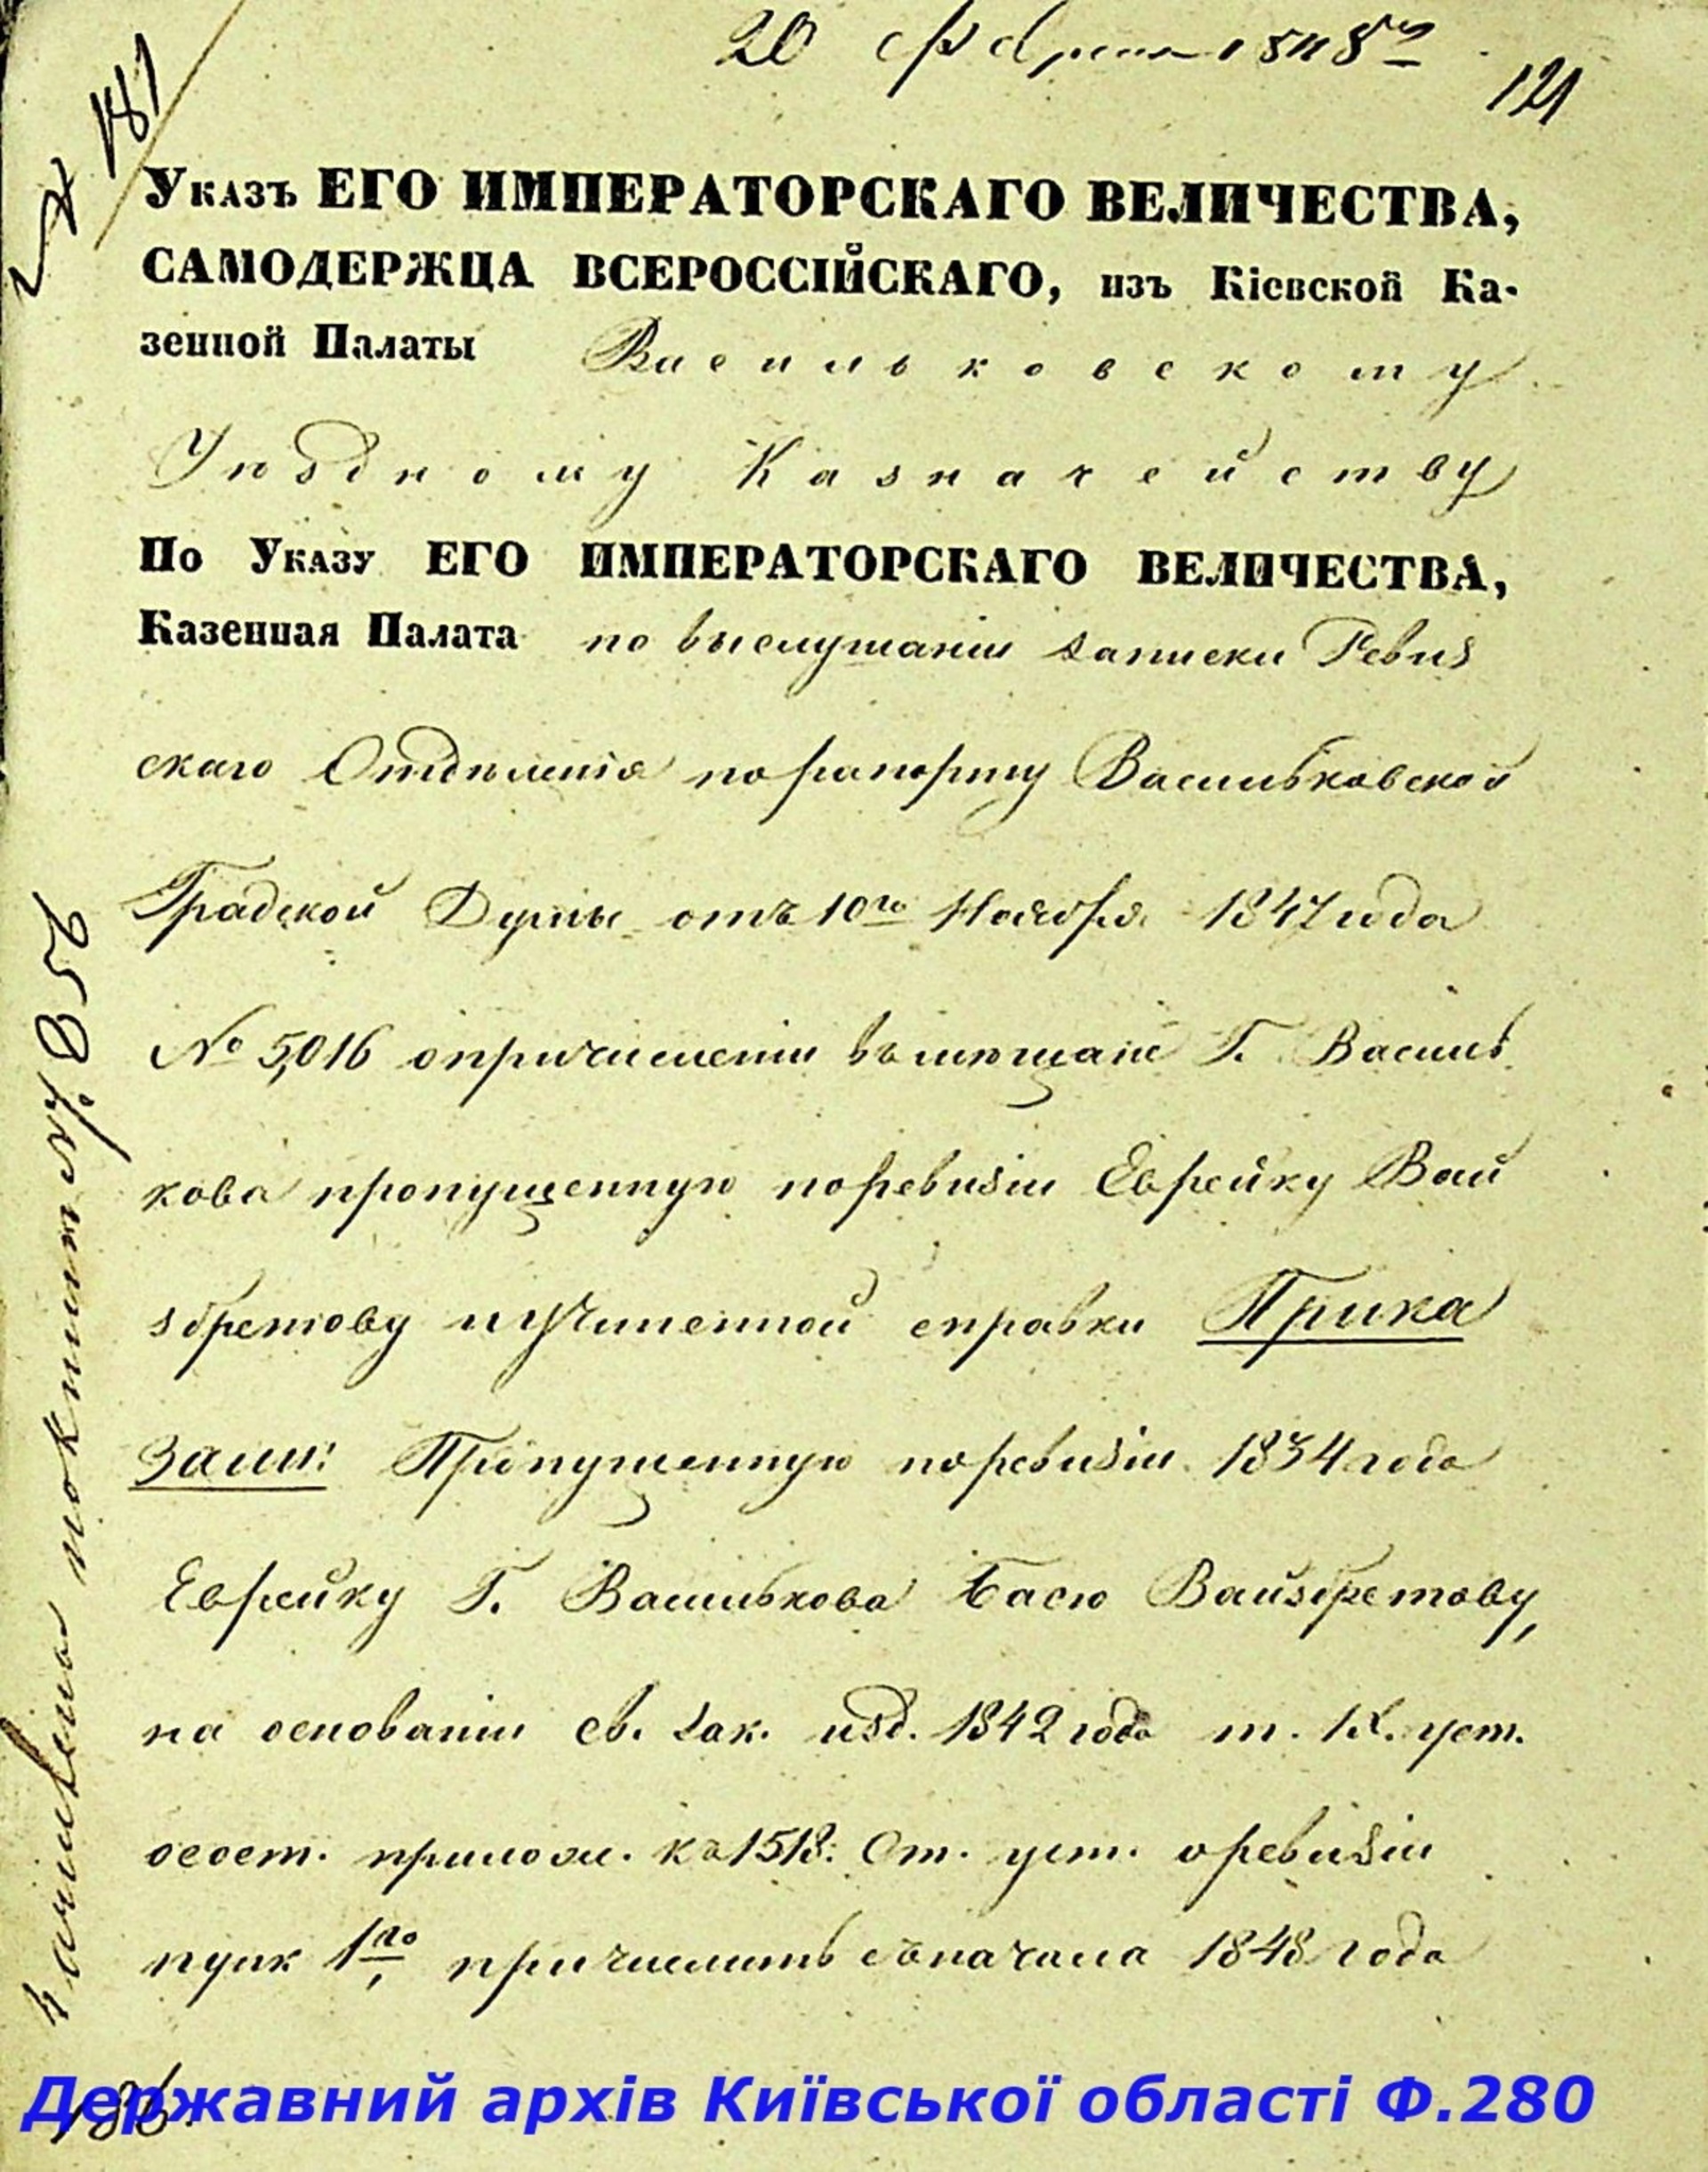 20 Февраля 1848го
121
181
Указъ ЕГО ИМПЕРАТОРСКАГО ВЕЛИЧЕСТВА,
САМОДЕРЖЦА ВСЕРОССІЙСКАГО, изъ Кіевской Ка-
зенной Палаты Васильковскому
Уѣздному Казначейству
По Указу ЕГО ИМПЕРАТОРСКАГО ВЕЛИЧЕСТВА,
Казенная Палата по выслушаніи записки Ревиз
скаго Отдѣленія по рапорту Васильковской
Градской Думы отъ 10го Ноября 1847 года
№ 5,016 о причисленіи въ мѣщане Г. Василь
кова пропущенную по ревизіи Еврейку Вай
збретову и учиненной справки Прика
зали: Пропущенную по ревизіи 1834 года
Еврейку Г. Василькова Басю Вайзбретову,
на основаніи св. зак. изд. 1842 года т. IX. уст.
о сост. прилож. къ 1518: Ст. уст. о ревизіи
пунк 1го, причислить съ начала 1848 года
Державний архів Київської області Ф.280